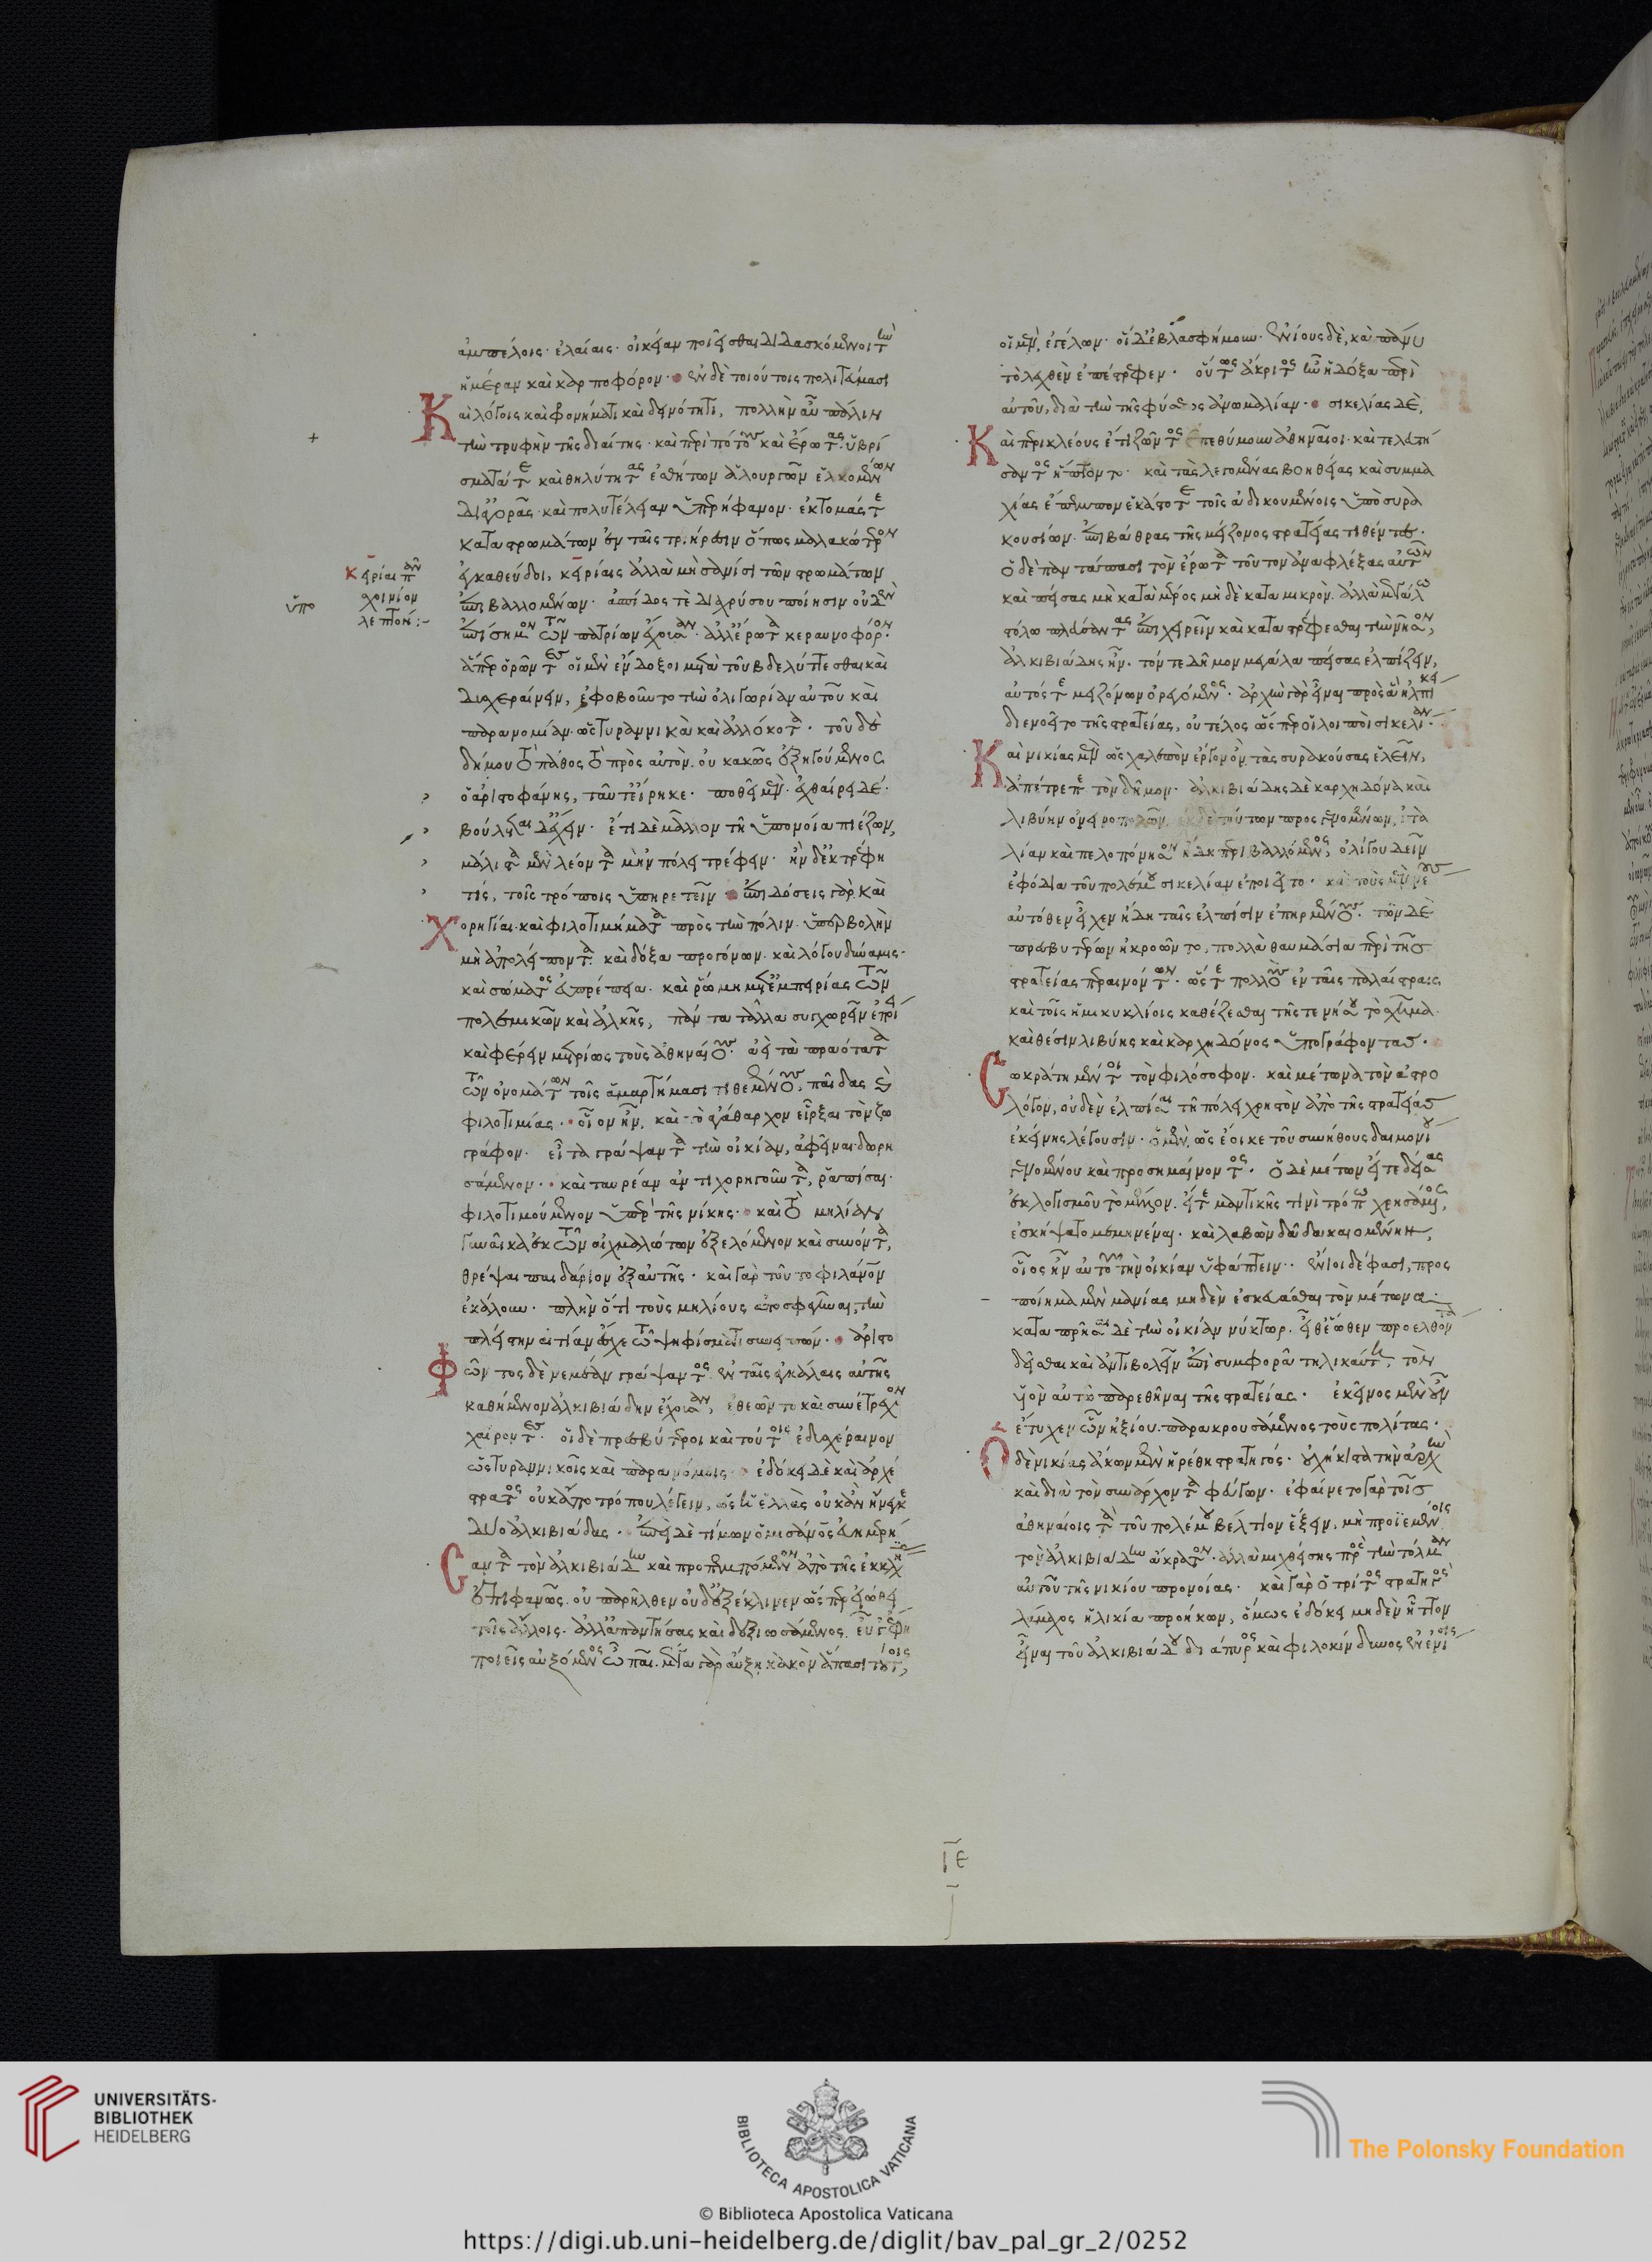 ἀμπέλοις· ἐλαίαις· οἰκείαν ποιεῖσθαι διδασκόμενοι τὴν
ἥμεραν καὶ καρποφόρον· ἐν δὲ τοιούτοις πολιτεύμασι
Καὶ λόγοις καὶ φρονήματι καὶ δεινότητι, πολλὴν αὖ πάλιν
τὴν τρυφὴν τῆς διαίτης· καὶ περὶ πότους καὶ ἔρωτας ὑβρί
σματα τε καὶ θηλύτητας ἐσθήτων ἁλουργῶν ἑλκομένων
δι' ἀγορᾶς· καὶ πολυτέλειαν ὑπερήφανον· ἐκτομάς τε
καταστρωμάτων ἐν ταῖς τριήρεσιν ὅπως μαλακώτερον
ἐγκαθεύδοι, κειρίαις ἀλλὰ μὴ σανίσι τῶν στρωμάτων
ἐπιβαλλομένων· ἀσπίδος τε διαχρύσου ποίησιν οὐδὲν
ἐπίσημον τῶν πατρίων ἔχουσαν· ἀλλ' ἔρωτα κεραυνοφόρον·
ἅπερ ὁρῶντες οἱ μὲν ἔνδοξοι μετὰ τοῦ βδελύττεσθαι καὶ
δυσχεραίνειν, ἐφοβοῦντο τὴν ὀλιγωρίαν αὐτοῦ καὶ
παρανομίαν· ὡς τυραννικὰ καὶ ἀλλόκοτα· τοῦ δὲ
δήμου τὸ πάθος τὸ πρὸς αὐτὸν· οὐ κακῶς ἐξηγούμενος
ὁ ἀριστοφάνης, ταῦτ' εἴρηκε· ποθεῖ μὲν· ἐχθαίρει δέ·
βούλεται δ' ἔχειν· ἔτι δὲ μᾶλλον τῇ ὑπονοίᾳ πιέζων,
μάλιστα μὲν λέοντα μὴ 'ν πόλει τρέφειν· ἢν δ' ἐκτρέφῃ
τίς, τοῖς τρόποις ὑπηρετεῖν· ἐπιδόσεις γὰρ καὶ
Χορηγίαι καὶ φιλοτιμήματα πρὸς τὴν πόλιν· ὑπερβολὴν
μὴ ἀπολείποντα· καὶ δόξα προγόνων· καὶ λόγου δύναμις·
καὶ σώματος εὐπρέπεια· καὶ ῥώμη μετ' ἐμπειρίας τῶν
πολεμικῶν καὶ ἀλκῆς, πάντα τἆλλα συγχωρεῖν ἐποίει
καὶ φέρειν μετρίως τοὺς ἀθηναίους· ἀεὶ τὰ πραότατα
τῶν ὀνομάτων τοῖς ἁμαρτήμασι τιθεμένους· παῖδας καὶ
φιλοτιμίας· οἷον ἦν, καὶ τὸ ἀγάθαρχον εἷρξαι τὸν ζω
γράφον· εἶτα γράψαντα τὴν οἰκίαν, ἀφεῖναι δωρη
σάμενον· καὶ ταυρέαν ἀντιχορηγοῦντα, ῥαπίσαι·
φιλοτιμούμενον ὑπὲρ τῆς νίκης· καὶ τὸ μηλίαν
γυναῖκα ἐκ τῶν αἰχμαλώτων ἐξελόμενον καὶ συνόντα,
θρέψαι παιδάριον ἐξ αὐτῆς· καὶ γὰρ τοῦτο φιλάνθρωπον
ἐκάλουν· πλὴν ὅτι τοὺς μηλίους ἀποσφαγῆναι, τὴν
πλείστην αἰτίαν ἔσχε τῶ ψηφίσματι συνειπών· ἀριστο
Φῶντος δὲ νεμέαν γράψαντος ἐν ταῖς ἀγκάλαις αὐτῆς
καθήμενον ἀλκιβιάδην ἔχουσαν, ἐθεῶντο καὶ συνέτρεχον
χαίροντες· οἱ δὲ πρεσβύτεροι καὶ τούτοις ἐδυσχέραινον
ὡς τυραννικοῖς καὶ παρανόμοις· ἐδόκει δὲ καὶ ἀρχέ
στρατος οὐκ ἄπο τρόπου λέγειν, ὡς ἡ ἑλλὰς οὐκ ἂν ἤνεγκε
δύο ἀλκιβιάδας· ἐπεὶ δὲ τίμων ὁ μισάνθρωπος εὐημερή
Σαντα τὸν ἀλκιβιάδην καὶ προπεμπόμενον ἀπὸ τῆς ἐκκλησίας
ἐπιφανῶς· οὐ παρῆλθεν οὐδ' ἐξέκλινεν ὥσπερ εἰώθει
τοῖς ἄλλοις· ἀλλ' ἀπαντήσας καὶ δεξιωσάμενος· εὖ γ' ἔφη
ποιεῖς αὐξόμενος ὦ παῖ· μέγα γὰρ αὔξῃ κακὸν ἅπασι τούτοις,
κειρίαι πᾶν
σχοινίον
λεπτόν:-
ὑπο
οἱ μὲν, ἐγέλων· οἱ δ' ἐβλασφήμουν· ἐνίους δὲ, καὶ πάνυ
τὸ λεχθὲν ἐπέστρεφεν· οὕτως ἄκριτος ἦν ἡ δόξα περὶ
αὐτοῦ, διὰ τὴν τῆς φύσεως ἀνωμαλίαν· σικελίας δὲ,
Καὶ περικλέους ἔτι ζῶντος ἐπεθύμουν ἀθηναῖοι· καὶ τελευτή
σαντος ἥπτοντο· καὶ τὰς λεγομένας βοηθείας καὶ συμμα
χίας ἔπεμπον ἑκάστοτε τοῖς ἀδικουμένοις ὑπὸ συρα
κουσίων· ἐπιβάθρας τῆς μείζονος στρατείας τιθέντες·
ὁ δὲ παντάπασι τὸν ἔρωτα τοῦτον ἀναφλέξας αὐτῶν
καὶ πείσας μὴ κατὰ μέρος μὴ δὲ κατὰ μικρὸν· ἀλλὰ μεγάλω
στόλω πλεύσαντας ἐπιχειρεῖν καὶ καταστρέφεσθαι τὴν νῆσον,
ἀλκιβιάδης ἦν· τόν τε δῆμον μεγάλα πείσας ἐλπίζειν,
αὐτός τε μειζόνων ὀρεγόμενος· ἀρχὴν γὰρ εἶναι πρὸς ἃ ἠλπίκει
διενοεῖτο τῆς στρατείας, οὐ τέλος ὥσπερ οἱ λοιποὶ σικελίαν·
Καὶ νικίας μὲν ὡς χαλεπὸν ἔργον ὂν τὰς συρακούσας ἑλεῖν,
ἀπέτρεπε τὸν δῆμον· ἀλκιβιάδης δὲ καρχηδόνα καὶ
λιβύην ὀνειροπολῶν, ἐκ δὲ τούτων προσγενομένων, ἰτα
λίαν καὶ πελοπόννησον ἤδη περιβαλλόμενος, ὀλίγου δεῖν
ἐφόδια τοῦ πολέμου σικελίαν ἐποιεῖτο· καὶ τοὺς μὲν νέους
αὐτόθεν εἶχεν ἤδη ταῖς ἐλπίσιν ἐπηρμένους· τῶν δὲ
πρεσβυτέρων ἠκροῶντο, πολλὰ θαυμάσια περὶ τῆς
στρατείας περαινόντων· ὥστε πολλοὺς ἐν ταῖς παλαίστραις
καὶ τοῖς ἡμικυκλίοις καθέζεσθαι τῆς τε νήσου τὸ σχῆμα
καὶ θέσιν λιβύης καὶ καρχηδόνος ὑπογράφοντας·
Σωκράτη μέντοι τὸν φιλόσοφον· καὶ μέτωνα τὸν ἀστρο
λόγον, οὐδὲν ἐλπίσαι τῇ πόλει χρηστὸν ἀπὸ τῆς στρατείας
ἐκείνης λέγουσιν· ὁ μὲν, ὡς ἔοικε τοῦ συνήθους δαιμονίου
γενομένου καὶ προσημαίνοντος· ὁ δὲ μέτων εἴτε δείσας
ἐκ λογισμοῦ τὸ μέλλον, εἴτε μαντικῆς τινὶ τρόπω χρησάμενος,
ἐσκήψατο μεμηνέναι· καὶ λαβὼν δᾷδα καιομένην,
οἷος ἦν αὐτοῦ τὴν οἰκίαν ὑφάπτειν· ἔνιοι δέ φασι, προς
ποίημα μὲν μανίας μηδὲν ἐσκευάσθαι τὸν μέτωνα·
καταπρῆσαι δὲ τὴν οἰκίαν νύκτωρ· εἶθ' ἕωθεν προελθόντα
δεῖσθαι καὶ ἀντιβολεῖν ἐπὶ συμφορᾷ τηλικαύτῃ, τὸν
υἱὸν αὐτῶ παρεθῆναι τῆς στρατείας· ἐκεῖνος μὲν οὖν
ἔτυχεν ὧν ἠξίου παρακρουσάμενος τοὺς πολίτας·
Ὁ δὲ νικίας ἄκων μὲν ᾑρέθη στρατηγός· οὐχ ἥκιστα τὴν ἀρχὴν
καὶ διὰ τὸν συνάρχοντα φεύγων· ἐφαίνετο γὰρ τοῖς
ἀθηναίοις τὰ τοῦ πολέμου βέλτιον ἕξειν, μὴ προϊεμένοις
τὸν ἀλκιβιάδην ἄκρατον· ἀλλὰ μιχθείσης πρὸς τὴν τόλμαν
αὐτοῦ τῆς νικίου προνοίας· καὶ γὰρ ὁ τρίτος στρατηγὸς
λάμαχος ἡλικίᾳ προήκων, ὅμως ἐδόκει μηδὲν ἧττον
εἶναι τοῦ ἀλκιβιάδου διάπυρος καὶ φιλοκίνδυνος ἐν ἐνίοις
ιε
UNIVERSITÄTS-
BIBLIOTHEK
HEIDELBERG
BIBLIOTECA APOSTOLICA VATICANA
The Polonsky Foundation
© Biblioteca Apostolica Vaticana
https://digi.ub.uni-heidelberg.de/diglit/bav_pal_gr_2/0252